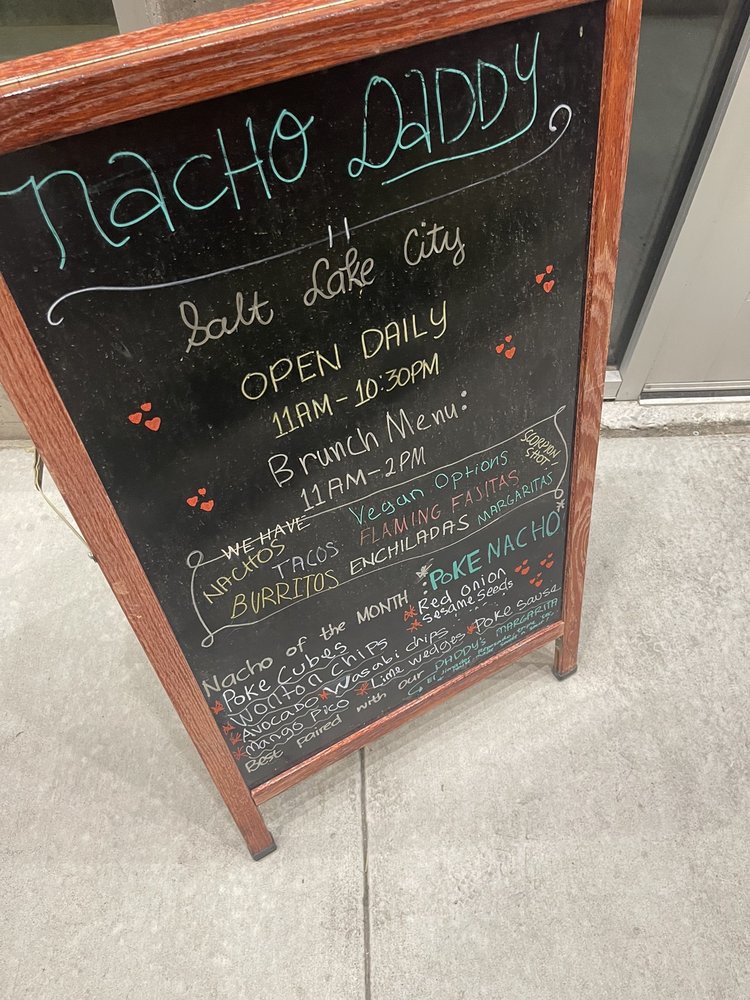 NACHO DADDY
Salt Lake City
OPEN DAILY
11AM - 10:30PM
Brunch Menu:
11AM - 2PM
WE HAVE Vegan Options SCORPION SHOT
NACHOS TACOS FLAMING FAJITAS
BURRITOS ENCHILADAS MARGARITAS
Nacho of the MONTH: POKE NACHO
Poke Cubes Red onion
Wonton Chips Sesame Seeds
Avocado Wasabi chips
Mango Pico Lime wedges Poke sause
Best paired with our DADDY'S MARGARITA